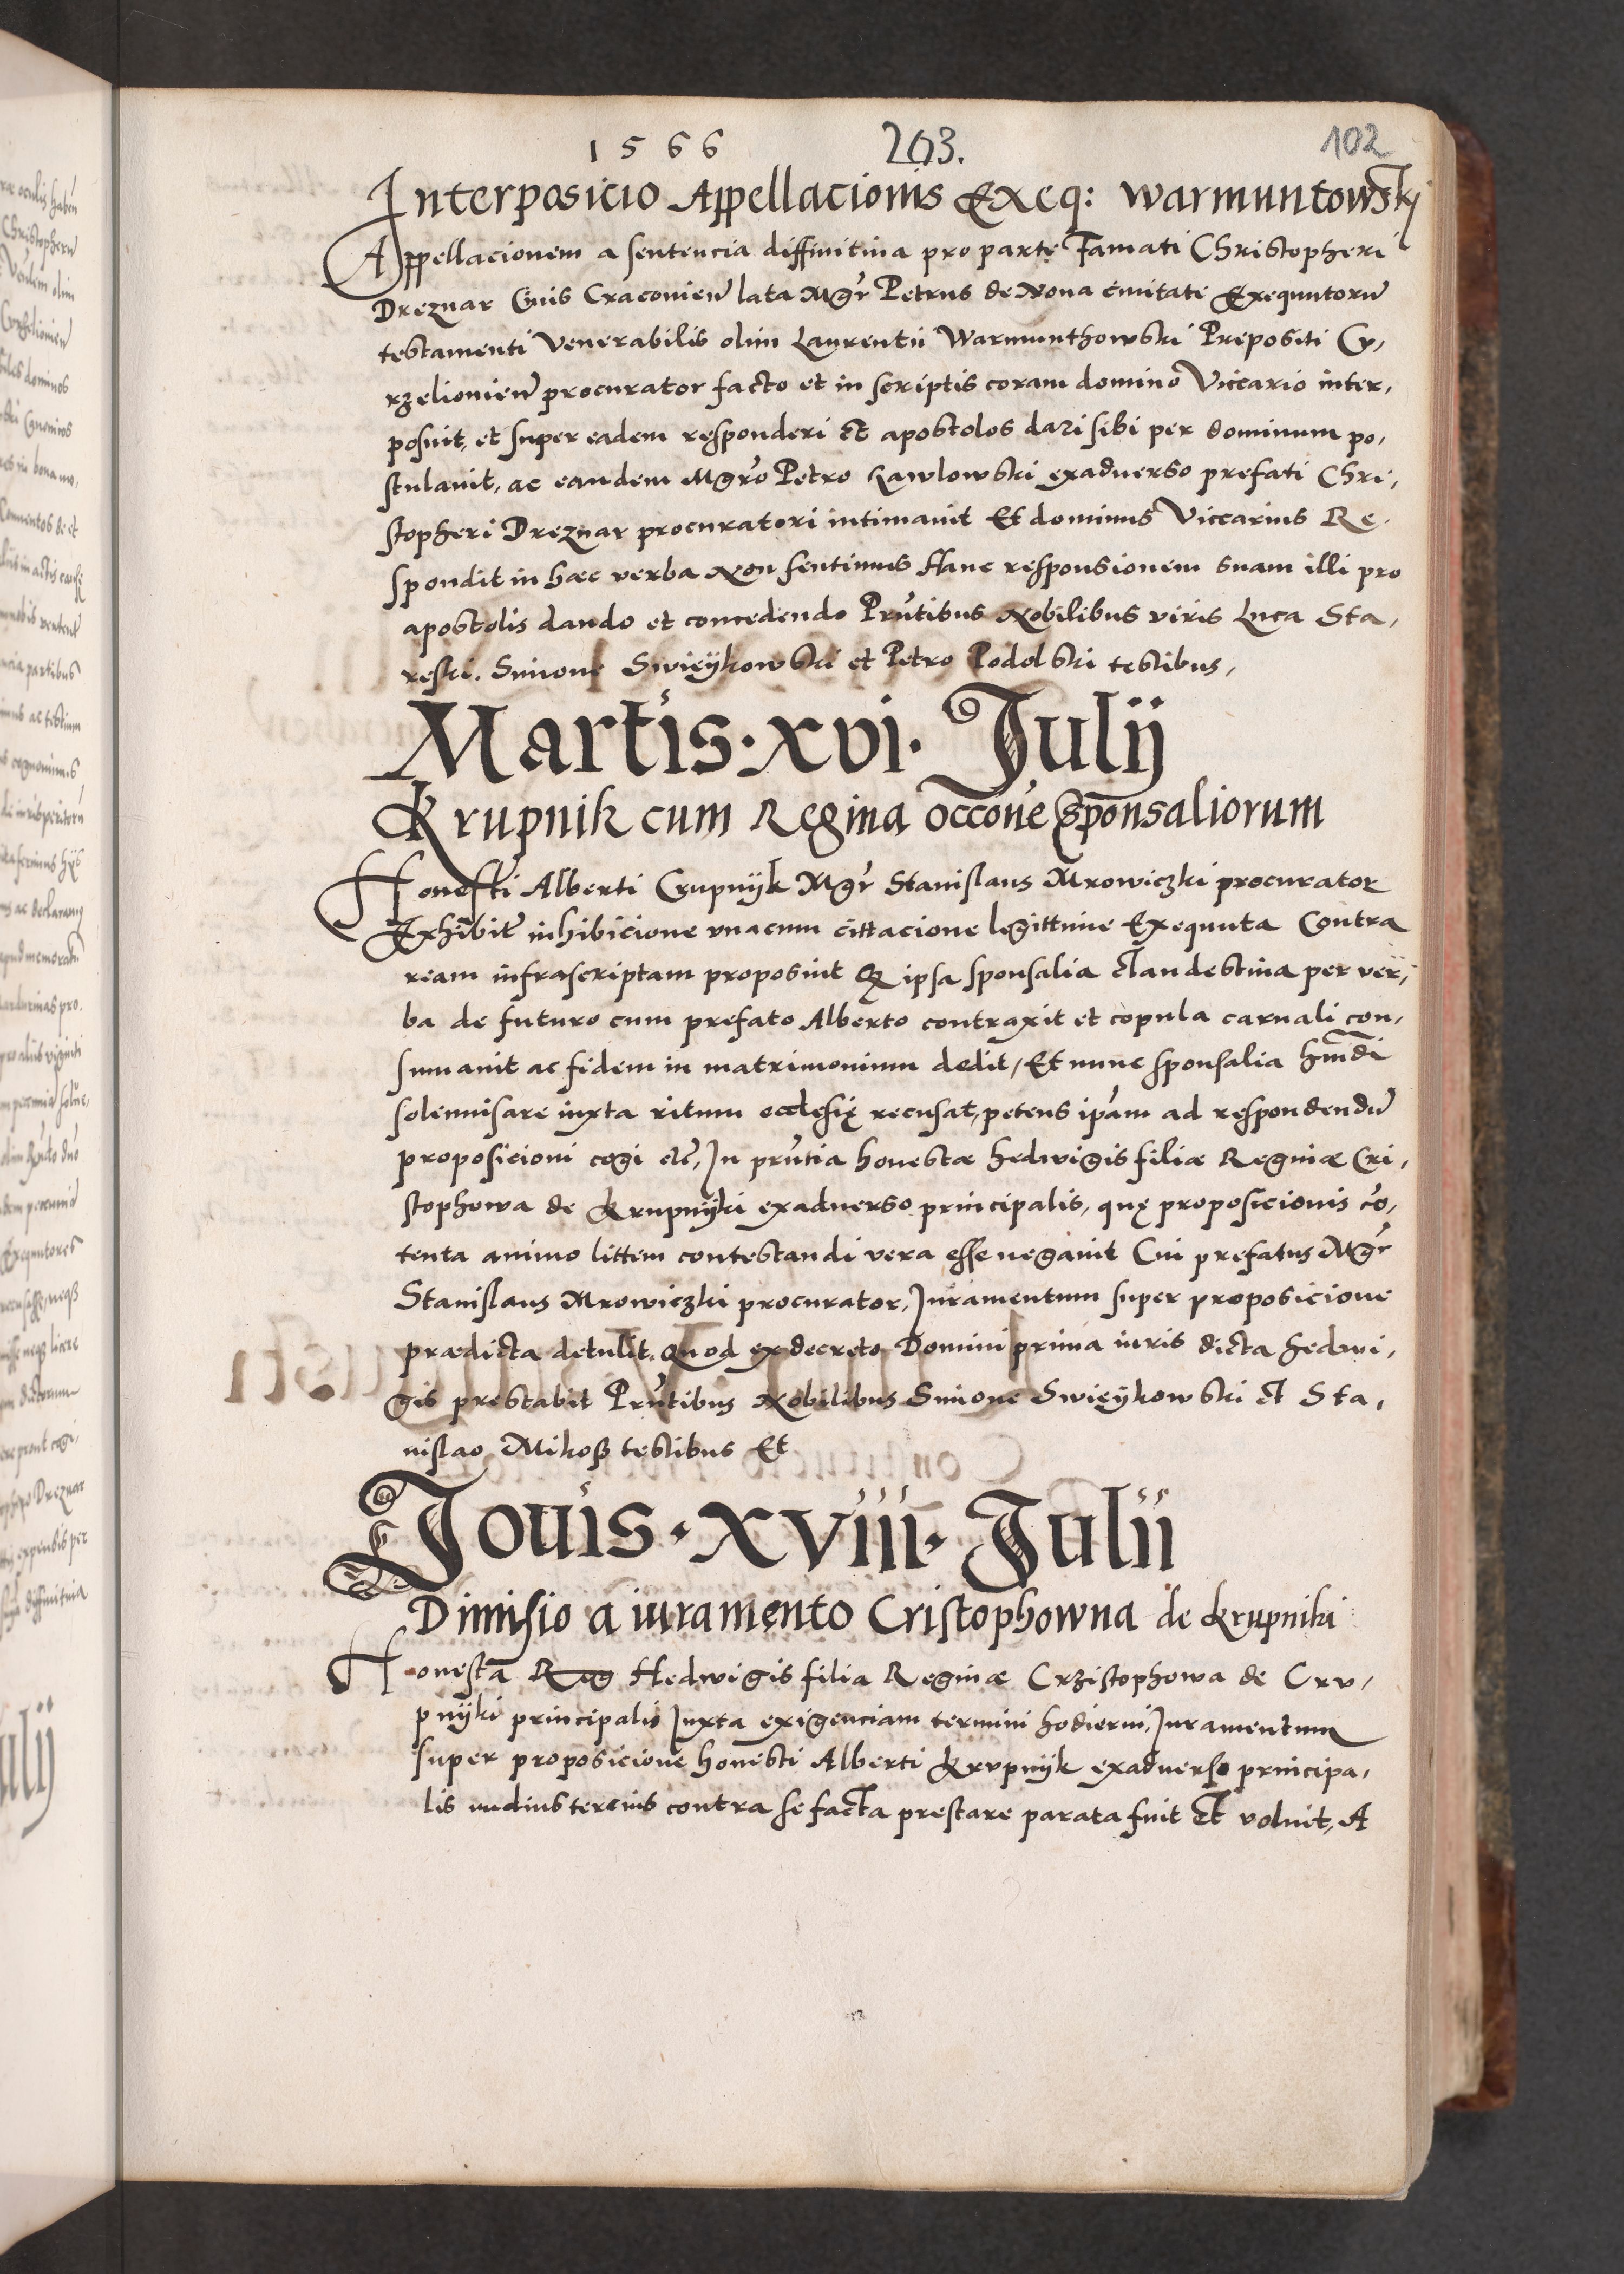 1566 203. 102
Interposicio Appellacionis Exeq: Warmuntowskj
Appellacionem a sentencia diffinitiua pro parte Famati Christopheri
Dreznar Ciuis Cracouien̄ lata Mgr̄ Petrus de Noua ciuitate Exequutorū
testamenti Venerabilis olim Laurentii Warmunthowski Prepositi Cu,
rzeliouien̄ procurator facto et in scriptis coram domino Viccario inter,
posuit, et super eadem responderi et apostolos dari sibi per dominum po,
stulauit, ac eandem Mgr̄o Petro Kawlowski exaduerso prefati Chri,
stopheri Dreznar procuratori intimauit Et dominus Viccarius Re,
spondit in hæc verba Non sentimus Hanc responsionem suam illi pro
apostolis dando et concedendo Prn̄tibus Nobilibus viris Luca Sta,
reski. Simone Swieykowski et Petro Podolski testibus,
Martis·xvi· Julij
Krupnik cum Regina occōne Sponsaliorum
Honesti Alberti Crupnijk Mgr̄ Stanislaus Mrowiczki procurator
Exhibit̄ inhibicione vnacum cittacione legittime Exequuta Contra
ream infrascriptam proposuit Qz ipsa sponsalia clandestina per ver,
ba de futuro cum prefato Alberto contraxit et copula carnali con,
sumauit ac fidem in matrimonium dedit, Et nunc sponsalia hm̄di
solennisare iuxta ritum ecclesię recusat, petens ipām ad respondendū
proposicioni cogi etc̄, In prn̄tia honestæ Hedwigis filiæ Reginæ Cri,
stophowa de Krupnijki exaduerso principalis, quę proposicionis cō,
tenta animo littem contestandi vera esse negauit Cui prefatus Mgr̄
Stanislaus Mrowiczki procurator, Juramentum super proposicione
prædicta detulit. Quod ex decreto Domini prima iuris dicta Hedwi,
gis prestabit Prn̄tibus Nobilibus Simone Swieykowski et Sta,
nislao Mikosz testibus Et
Jouis·xviii· Julii
Dimisio a iuramento Cristophowna de Krupniki
Honesta Reg Hedwigis filia Reginæ Crzistophowa de Cru,
pnijki principalis Juxta exigenciam termini hodierni, Juramentum
super proposicione honesti Alberti Krupnijk exaduerso principa,
lis nudius tercius contra se facta prestare parata fuit et voluit, A